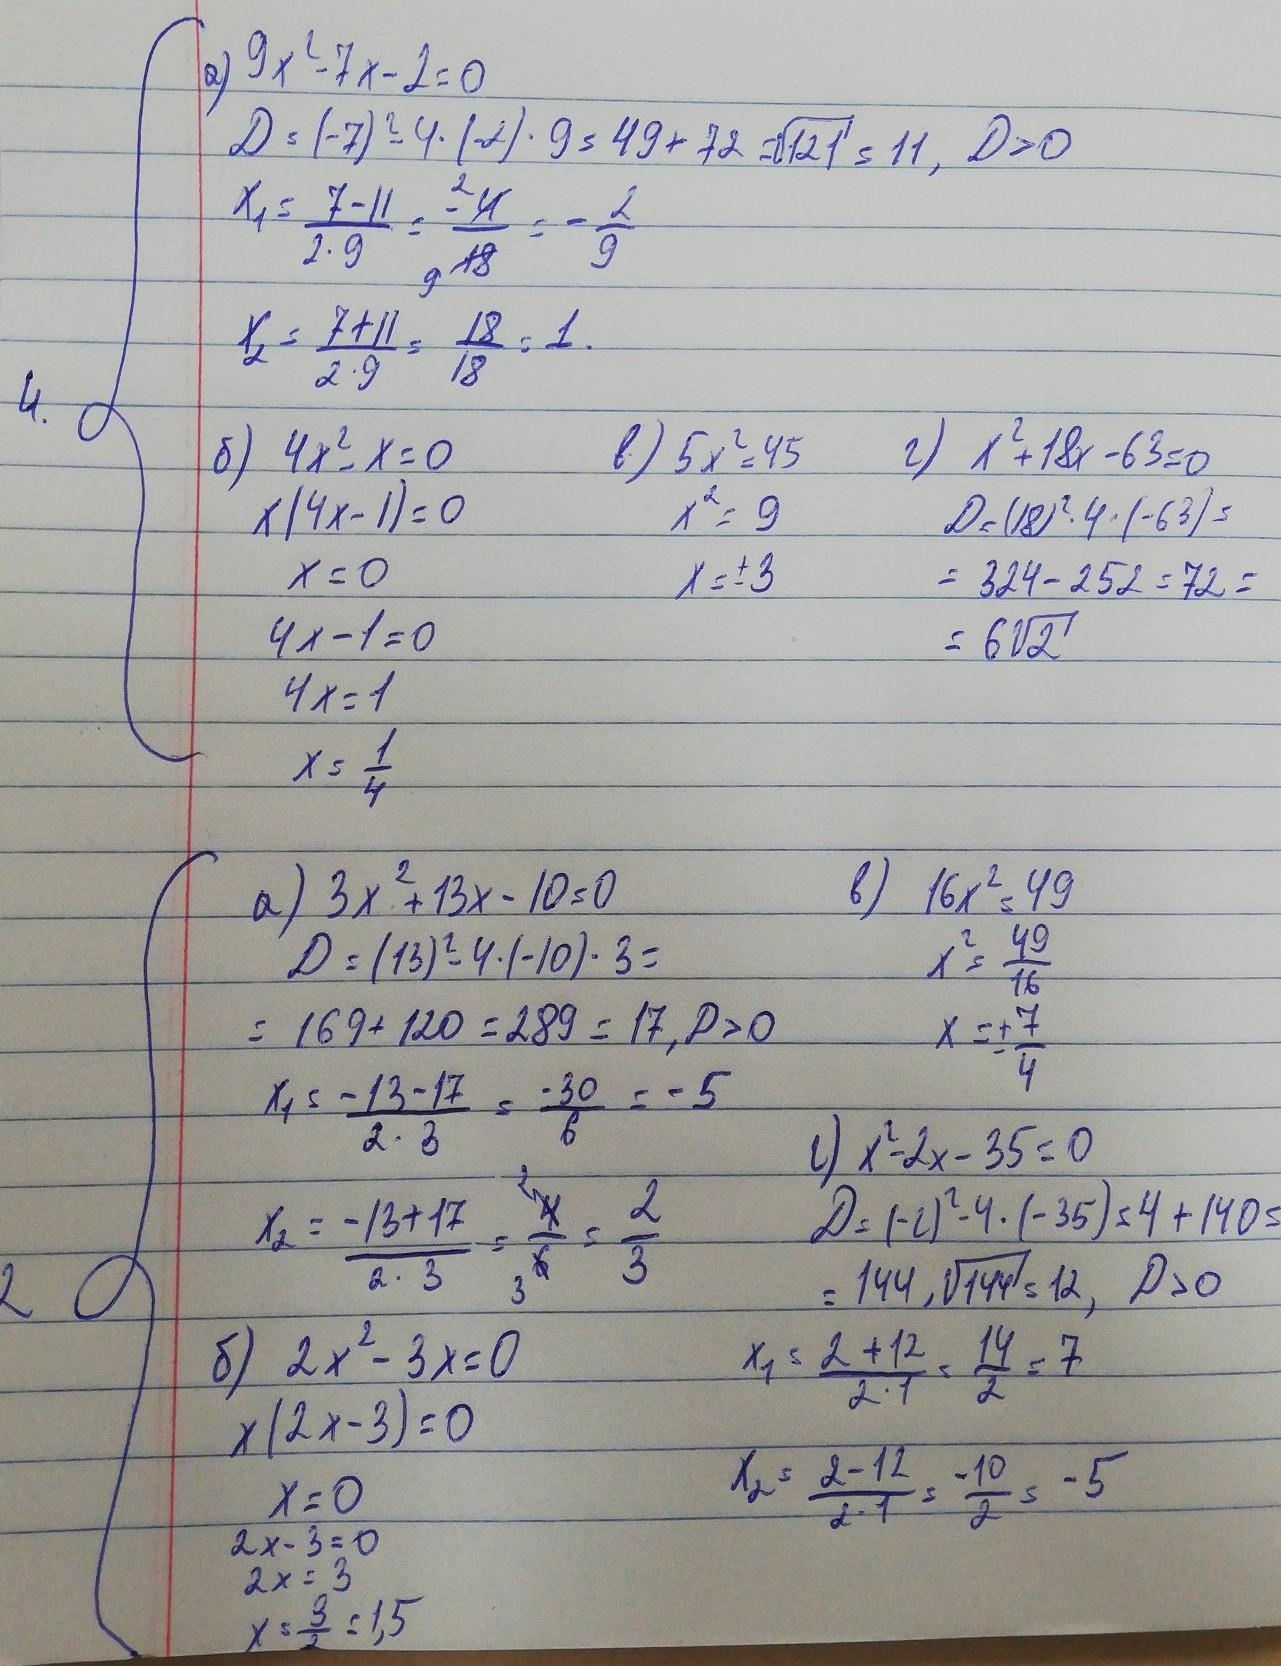 4.
а) 9x² - 7x - 2 = 0
D = (-7)² - 4 · (-2) · 9 = 49 + 72 = √121 = 11, D > 0
x₁ = (7-11)/(2·9) = -4/18 = -2/9
x₂ = (7+11)/(2·9) = 18/18 = 1.
б) 4x² - x = 0
x(4x - 1) = 0
x = 0
4x - 1 = 0
4x = 1
x = 1/4
в) 5x² = 45
x² = 9
x = ±3
г) x² + 18x - 63 = 0
D = (18)² · 4 · (-63) =
= 324 - 252 = 72 =
= 6√2
2
а) 3x² + 13x - 10 = 0
D = (13)² - 4 · (-10) · 3 =
= 169 + 120 = 289 = 17, D > 0
x₁ = (-13-17)/(2·3) = -30/6 = -5
x₂ = (-13+17)/(2·3) = 4/6 = 2/3
б) 2x² - 3x = 0
x(2x - 3) = 0
x = 0
2x - 3 = 0
2x = 3
x = 3/2 = 1,5
в) 16x² = 49
x² = 49/16
x = ±7/4
г) x² - 2x - 35 = 0
D = (-2)² - 4 · (-35) = 4 + 140 =
= 144, √144 = 12, D > 0
x₁ = (2+12)/(2·1) = 14/2 = 7
x₂ = (2-12)/(2·1) = -10/2 = -5